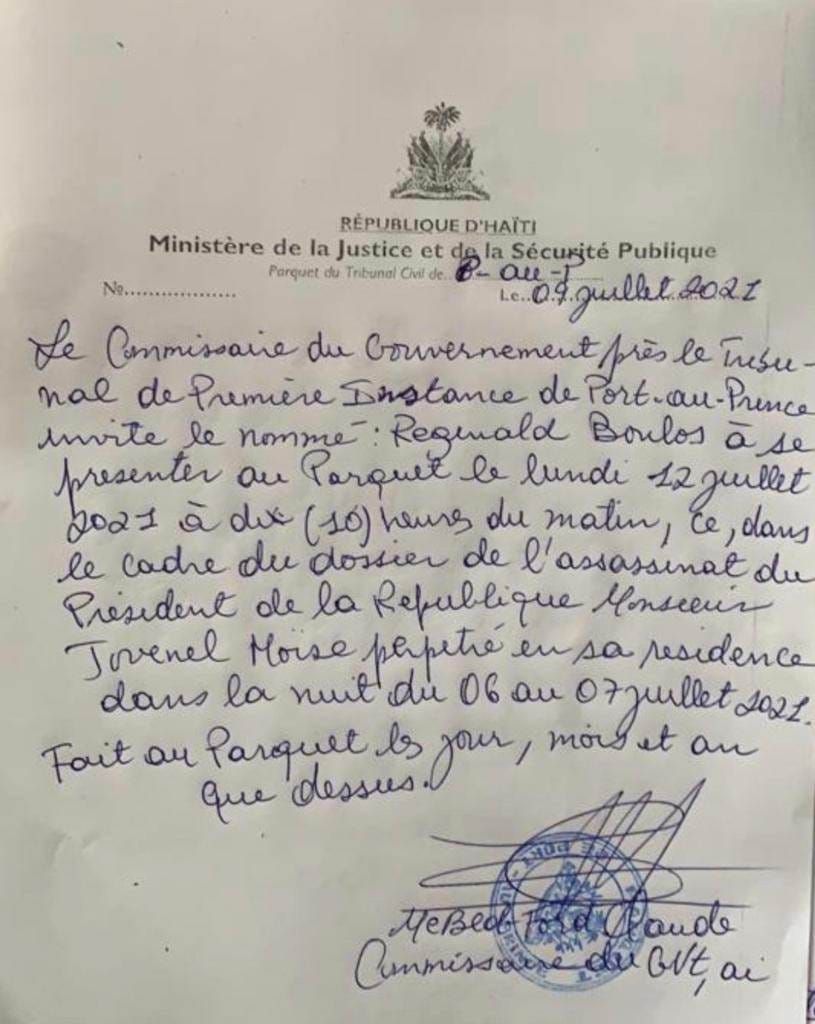 RÉPUBLIQUE D'HAÏTI
Ministère de la Justice et de la Sécurité Publique
Parquet du Tribunal Civil de P-au-P
No.................. Le..09 juillet 2021
Le Commissaire du Gouvernement près le Tribu-
nal de Première Instance de Port-au-Prince
invite le nommé : Reginald Boulos à se
presenter au Parquet le lundi 12 juillet
2021 à dix (10) heures du matin, ce, dans
le cadre du dossier de l'assassinat du
Président de la Republique Monsieur
Jovenel Moïse perpetré en sa residence
dans la nuit du 06 au 07 juillet 2021.
Fait au Parquet les jour, mois et an
que dessus.
Me Bed-Ford Claude
Commissaire du GVt, ai